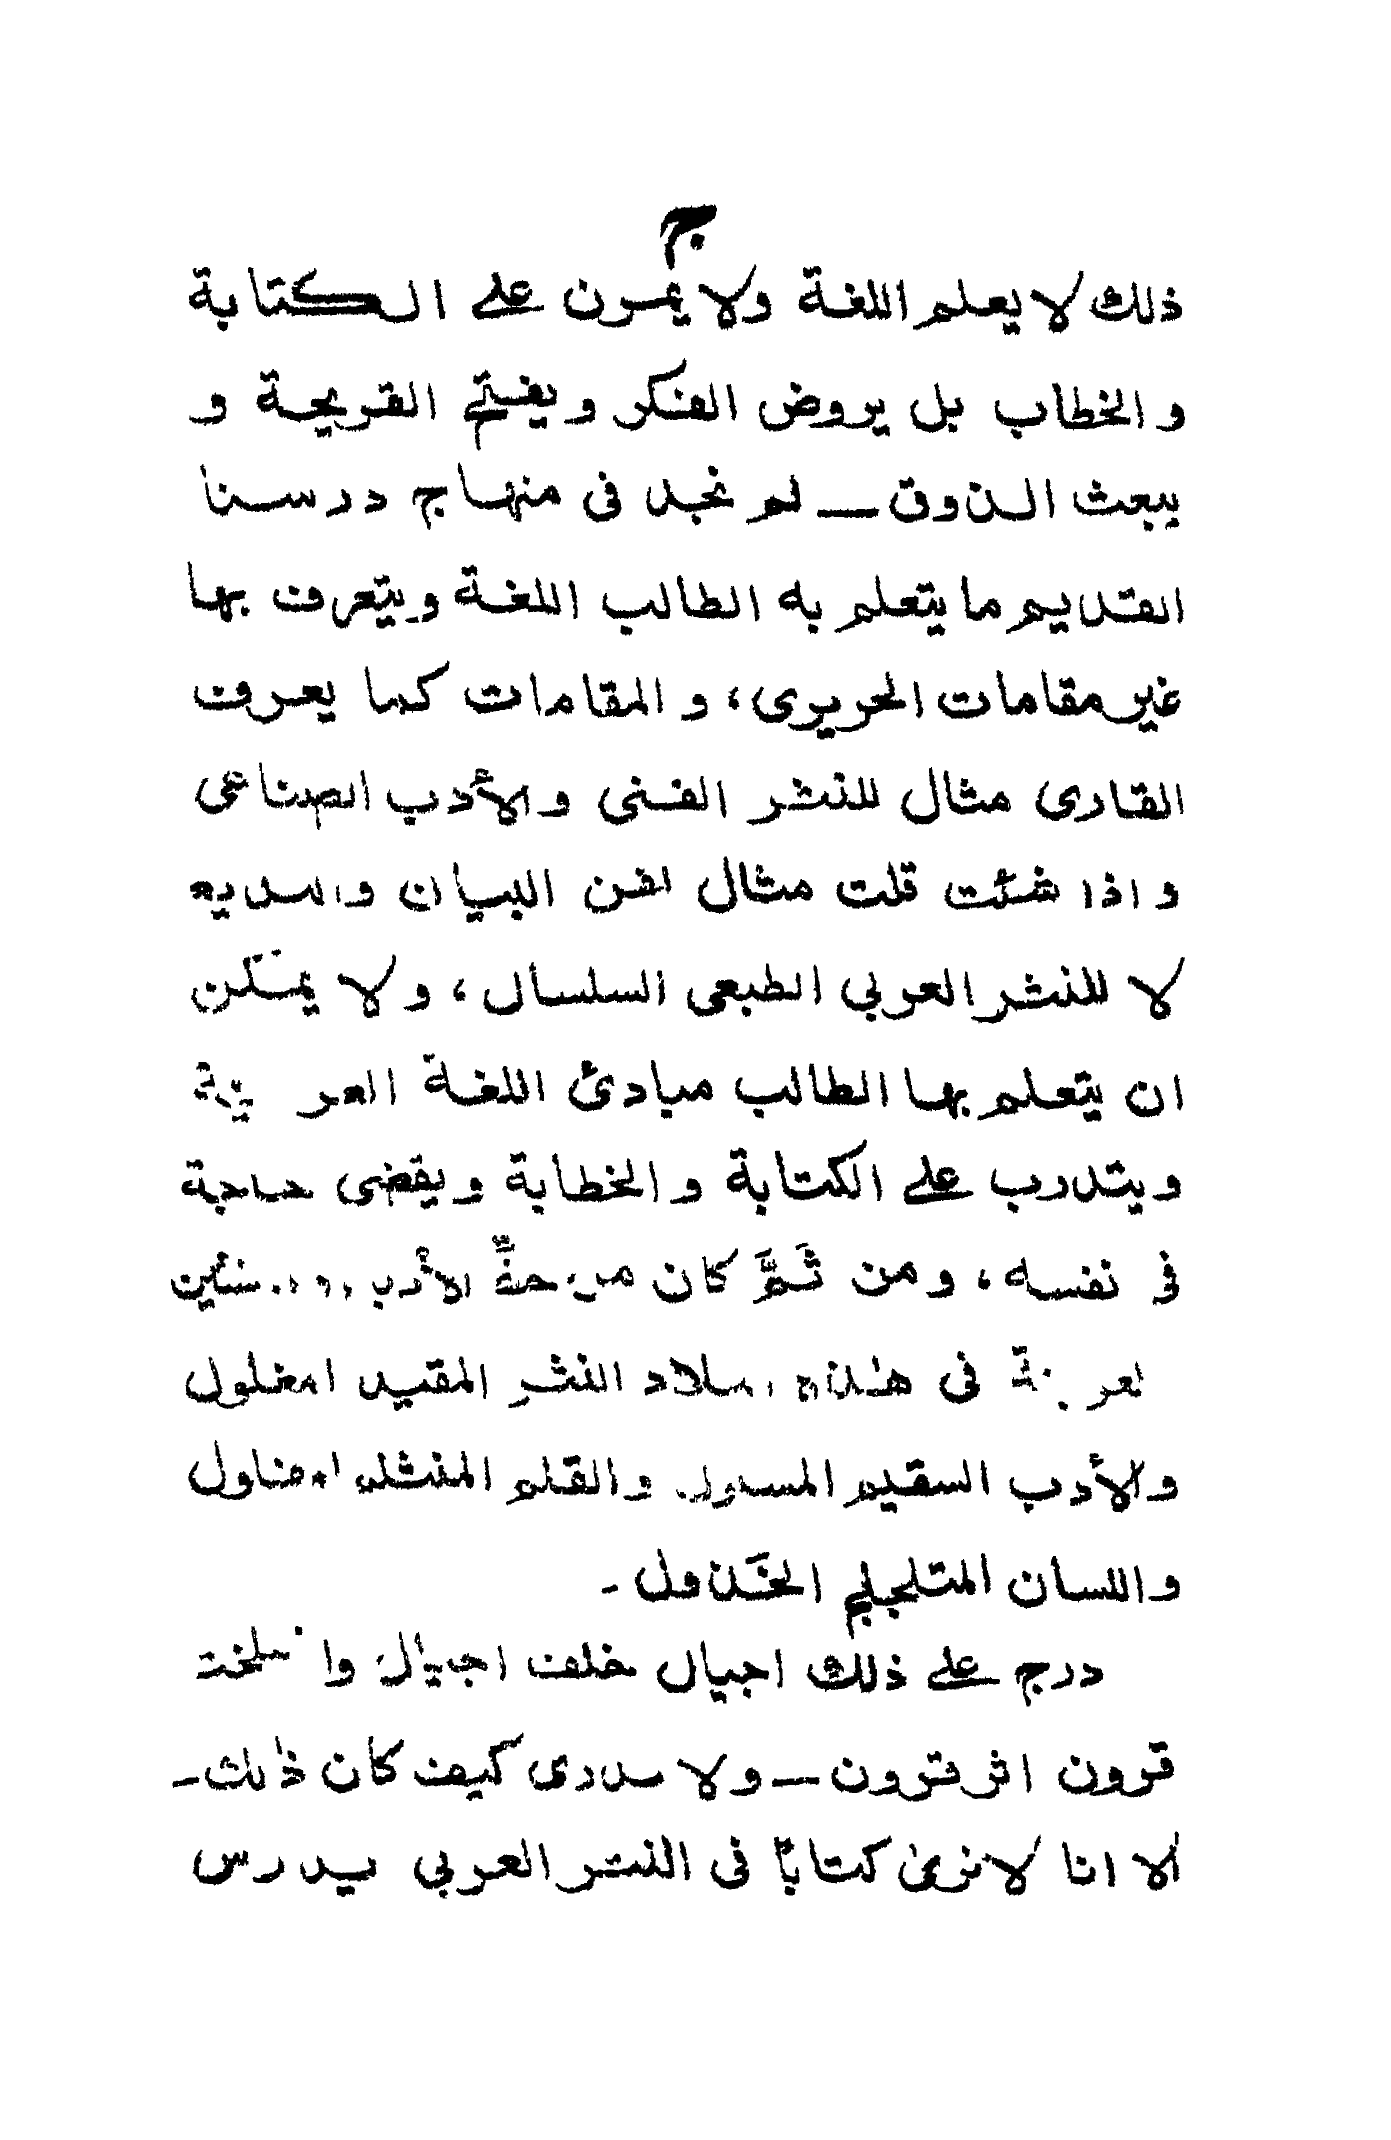 ج
ذلك لا يعلم اللغة ولا يمرن على الكتابة
والخطاب بل يروض الفكر ويفتح القريحة و
يبعث الذوق — لم نجد فى منهاج درسنا
القديم ما يتعلم به الطالب اللغة ويتعرف بها
غير مقامات الحريرى، والمقامات كما يعرف
القارى مثال للنثر الفنى والأدب الصناعى
واذا شئت قلت مثال لفن البيان والبديع
لا للنثر العربي الطبعى السلسال، ولا يمكن
ان يتعلم بها الطالب مبادئ اللغة العربية
ويتدرب على الكتابة والخطابة ويقضى حاجة
فى نفسه، ومن ثَمَّ كان من الأدب
فى هذه البلاد النثر المقيد المغلول
والأدب السقيم والقلم
واللسان المتلجلج الخَذول -
درج على ذلك اجيال خلف اجيال وانسلخت
قرون اثر قرون — ولا ندرى كيف كان ذلك -
الا انا لا نرى كتابًا فى النثر العربي يدرس